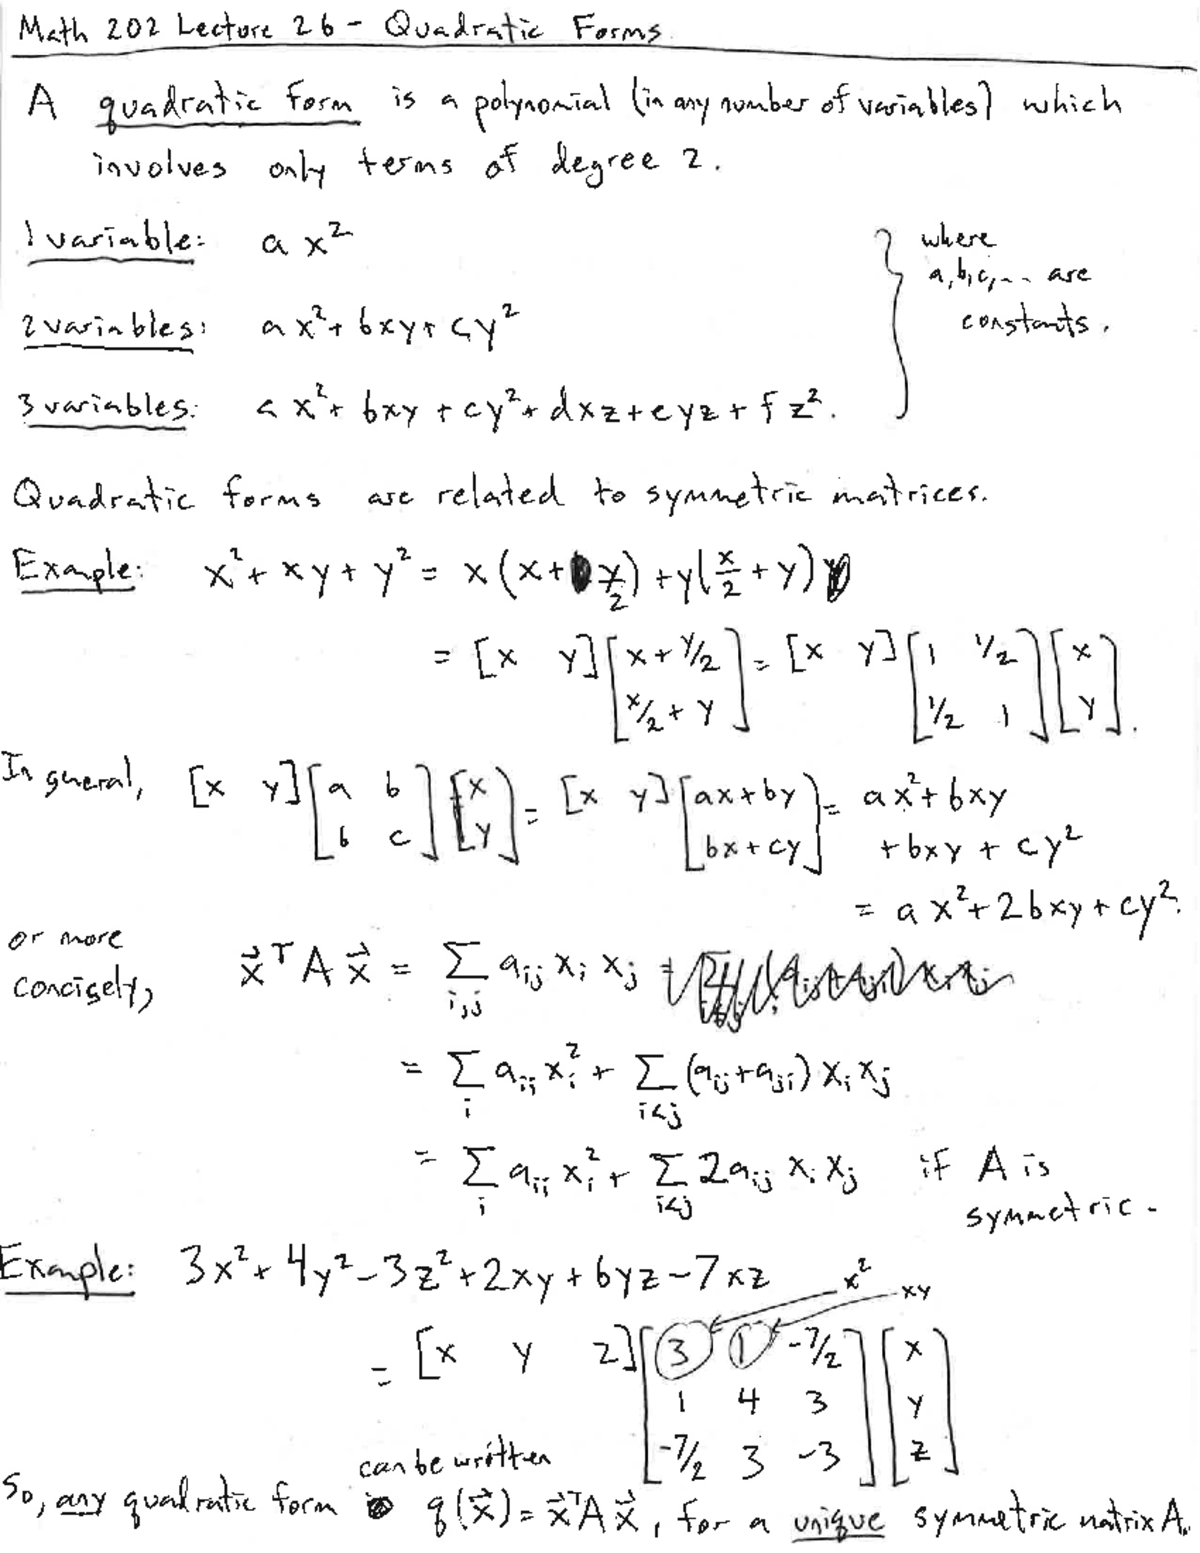 Math 202 Lecture 26 - Quadratic Forms
A quadratic form is a polynomial (in any number of variables) which
involves only terms of degree 2.
1 variable: a x²
where
a,b,c,... are
constants.
2 variables: a x² + bxy + cy²
3 variables: a x² + bxy + cy² + dxz + eyz + f z².
Quadratic forms are related to symmetric matrices.
Example: x² + xy + y² = x(x + y/2) + y(x/2 + y)
= [x y] [x + y/2; x/2 + y] = [x y] [1 1/2; 1/2 1] [x; y].
In general, [x y] [a b; b c] [x; y] = [x y] [ax + by; bx + cy] = ax² + bxy
+ bxy + cy²
= ax² + 2bxy + cy².
or more
concisely, x⃗ᵀ A x⃗ = Σ_{i,j} a_{ij} x_i x_j
= Σ_i a_{ii} x_i² + Σ_{i<j} (a_{ij} + a_{ji}) x_i x_j
= Σ_i a_{ii} x_i² + Σ_{i<j} 2a_{ij} x_i x_j if A is
symmetric.
Example: 3x² + 4y² - 3z² + 2xy + 6yz - 7xz
x² xy
= [x y z] [3 1 -7/2; 1 4 3; -7/2 3 -3] [x; y; z]
can be written
So, any quadratic form q(x⃗) = x⃗ᵀA x⃗, for a unique symmetric matrix A.